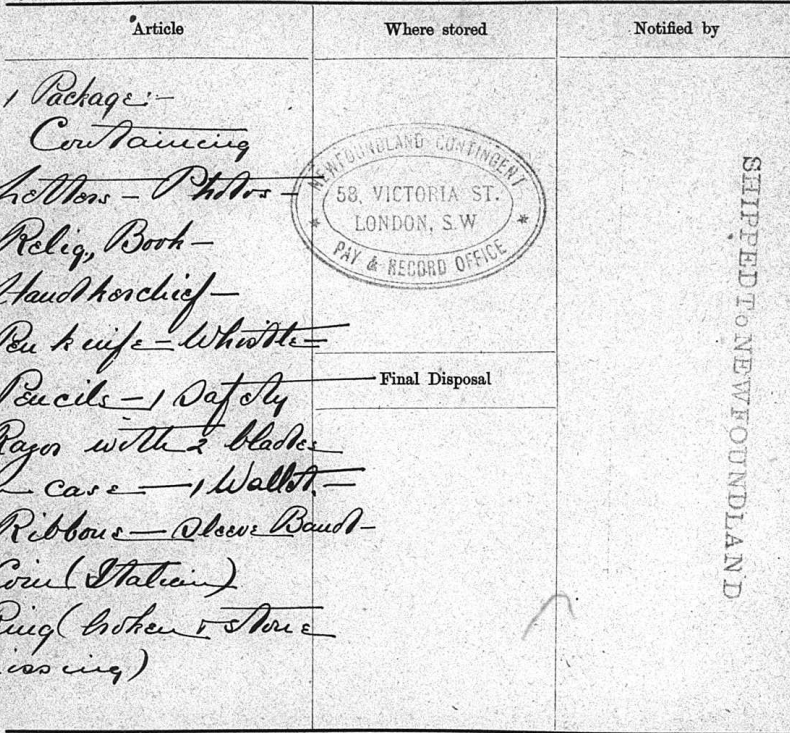 Article
Where stored
Notified by
1 Package:-
Containing
Letters - Photos -
Relig, Book -
Handkerchief -
Pen knife - Whistle -
Pencils - 1 Safety
Razor with 2 blades
case - 1 Wallet. -
Ribbons - Sleeve Band -
Coin (Italian)
Ring (broken & stone
issing)
NEWFOUNDLAND CONTINGENT
58, VICTORIA ST.
LONDON, S.W
PAY & RECORD OFFICE
Final Disposal
SHIPPED To NEWFOUNDLAND